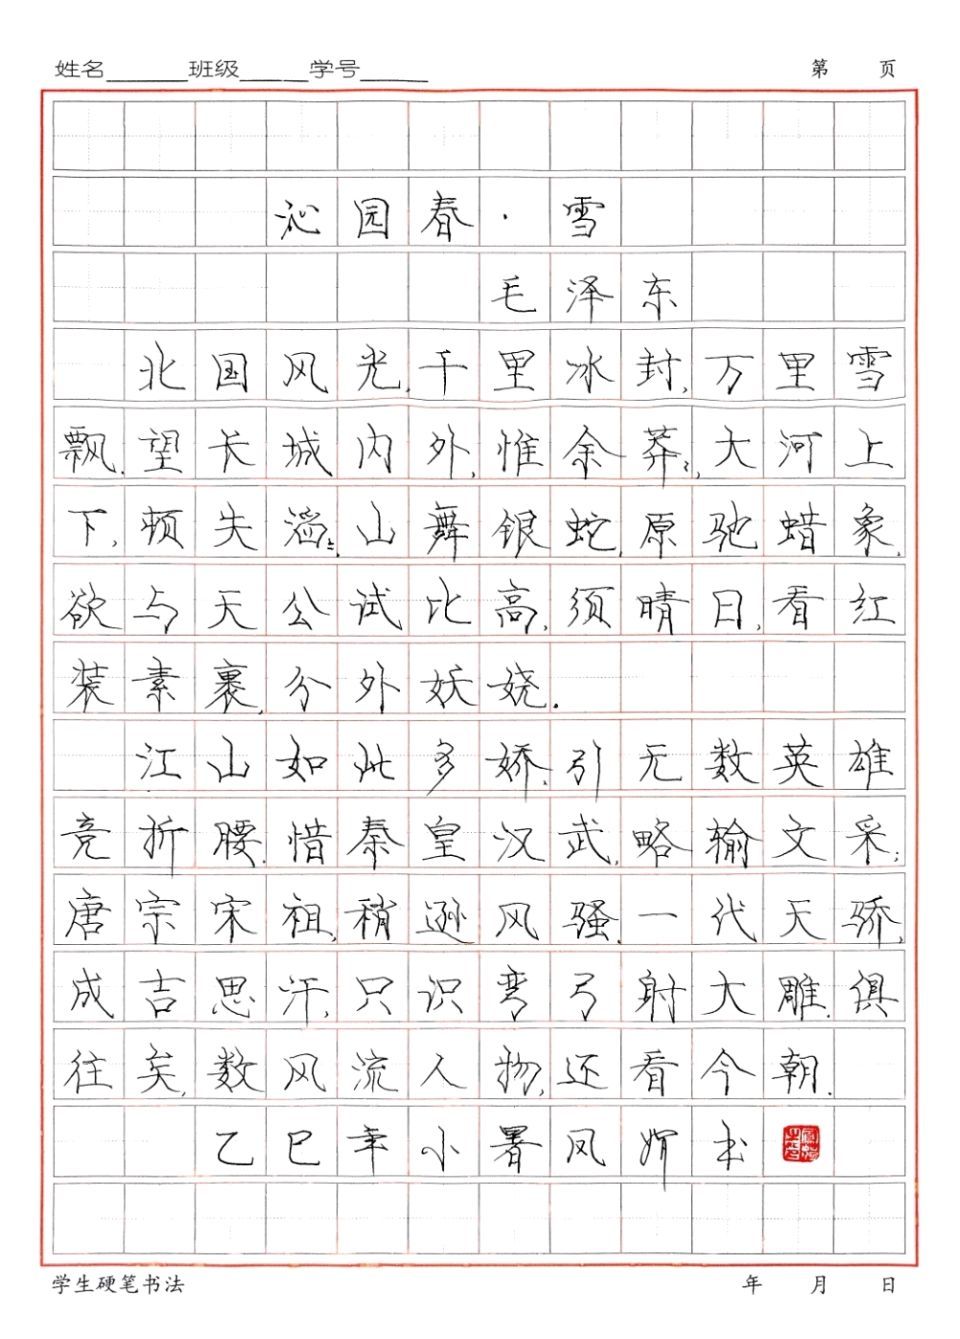 姓名______班级______学号______ 第 页
沁园春·雪
毛泽东
北国风光,千里冰封,万里雪
飘.望长城内外,惟余莽々,大河上
下,顿失滔々.山舞银蛇,原驰蜡象,
欲与天公试比高,须晴日,看红
装素裹,分外妖娆.
江山如此多娇,引无数英雄
竞折腰.惜秦皇汉武,略输文采;
唐宗宋祖,稍逊风骚.一代天骄,
成吉思汗,只识弯弓射大雕.俱
往矣,数风流人物,还看今朝.
乙巳年小暑凤娟书
学生硬笔书法 年 月 日